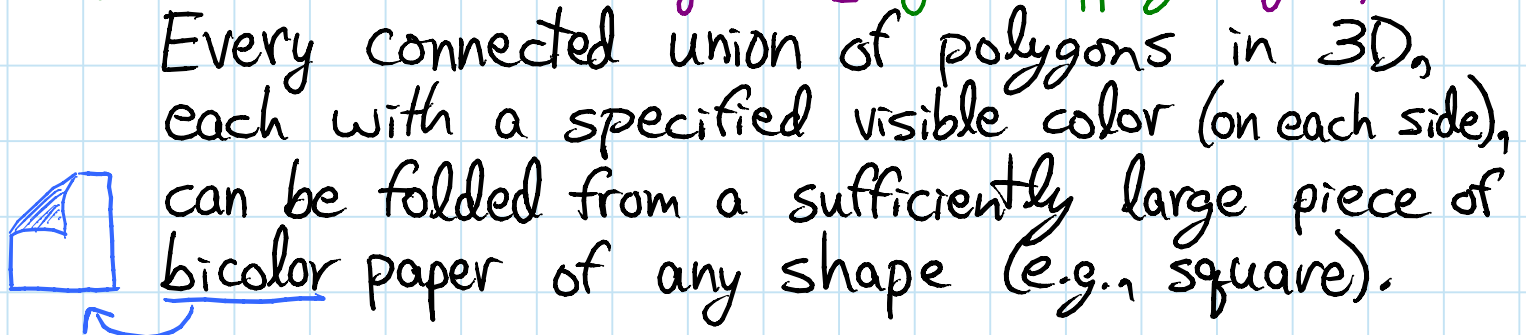 Every connected union of polygons in 3D,
each with a specified visible color (on each side),
can be folded from a sufficiently large piece of
bicolor paper of any shape (e.g., square).